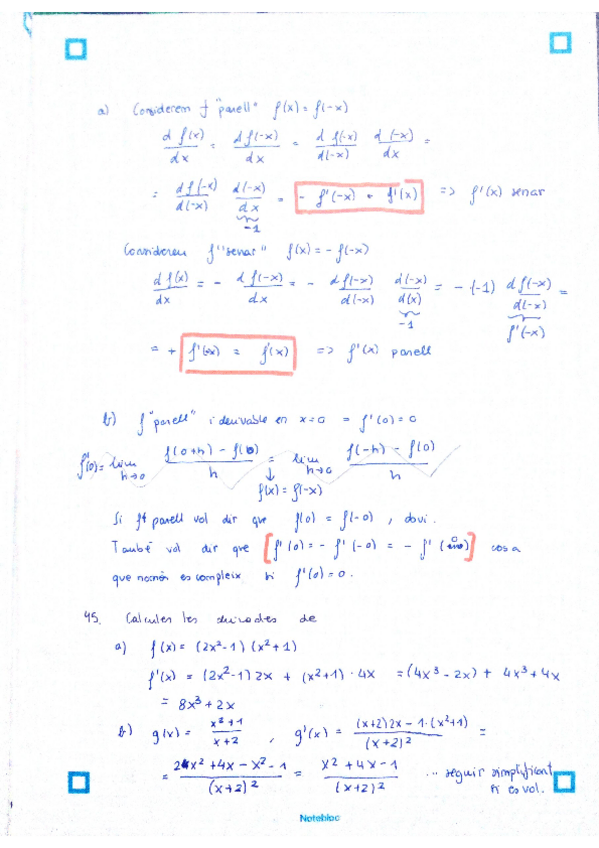 a) Considerem f "parell" f(x) = f(-x)
d f(x)/dx = d f(-x)/dx = d f(-x)/d(-x) d(-x)/dx =
= d f(-x)/d(-x) d(-x)/dx = - f'(-x) = f'(x) => f'(x) senar
-1
Considerem f "senar" f(x) = - f(-x)
d f(x)/dx = - d f(-x)/dx = - d f(-x)/d(-x) d(-x)/d(x) = - (-1) d f(-x)/d(-x) =
-1 f'(-x)
= + f'(-x) = f'(x) => f'(x) parell
b) f "parell" i derivable en x=0 = f'(0) = 0
f'(0) = lim h→0 f(0+h) - f(0)/h = lim h→0 f(-h) - f(0)/h
↓
f(x) = f(-x)
Si f parell vol dir que f(0) = f(-0), .
També vol dir que [f'(0) = - f'(-0) = - f'(0)] cosa
que només es compleix si f'(0) = 0.
45. Calculer les derivades de
a) f(x) = (2x²-1)(x²+1)
f'(x) = (2x²-1)2x + (x²+1)·4x = (4x³-2x) + 4x³+4x
= 8x³+2x
b) g(x) = x²+1/x+2, g'(x) = (x+2)2x - 1·(x²+1)/(x+2)² =
= 2x²+4x-x²-1/(x+2)² = x²+4x-1/(x+2)² ... seguir simplificant
si es vol.
Notebloc